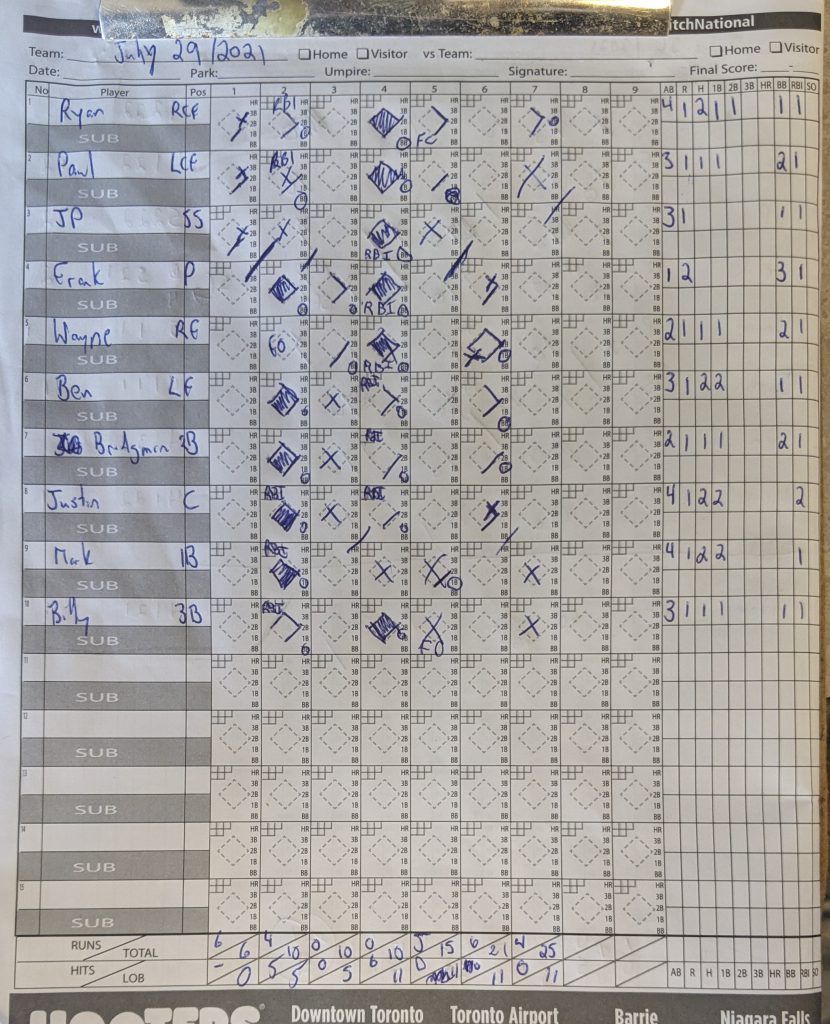 itchNational
Team: July 29/2021 Home Visitor vs Team: Home Visitor
Date: Park: Umpire: Signature: Final Score:
No Player Pos 1 2 3 4 5 6 7 8 9 AB R H 1B 2B 3B HR BB RBI SO
1 Ryan RCF RBI FC 4 1 2 1 1 1 1
SUB
2 Paul LCF RBI 3 1 1 1 2 1
SUB
3 JP SS RBI 3 1 1 1
SUB
4 Frank P RBI 1 2 3 1
SUB
5 Wayne RF FO RBI 2 1 1 1 2 1
SUB
6 Ben LF RBI 3 1 2 2 1 1
SUB
7 Bridgman 2B RBI 2 1 1 1 2 1
SUB
8 Justin C RBI RBI 4 1 2 2 2
SUB
9 Mark 1B RBI 4 1 2 2 1
SUB
10 Billy 3B RBI FO 3 1 1 1 1 1
SUB
11
SUB
12
SUB
13
SUB
14
SUB
15
SUB
RUNS TOTAL 6 6 4 10 0 10 0 10 5 15 6 21 4 25
HITS LOB - 0 5 5 0 5 6 11 0 11 0 11
AB R H 1B 2B 3B HR BB RBI SO
HOOTERS Downtown Toronto Toronto Airport Barrie Niagara Falls